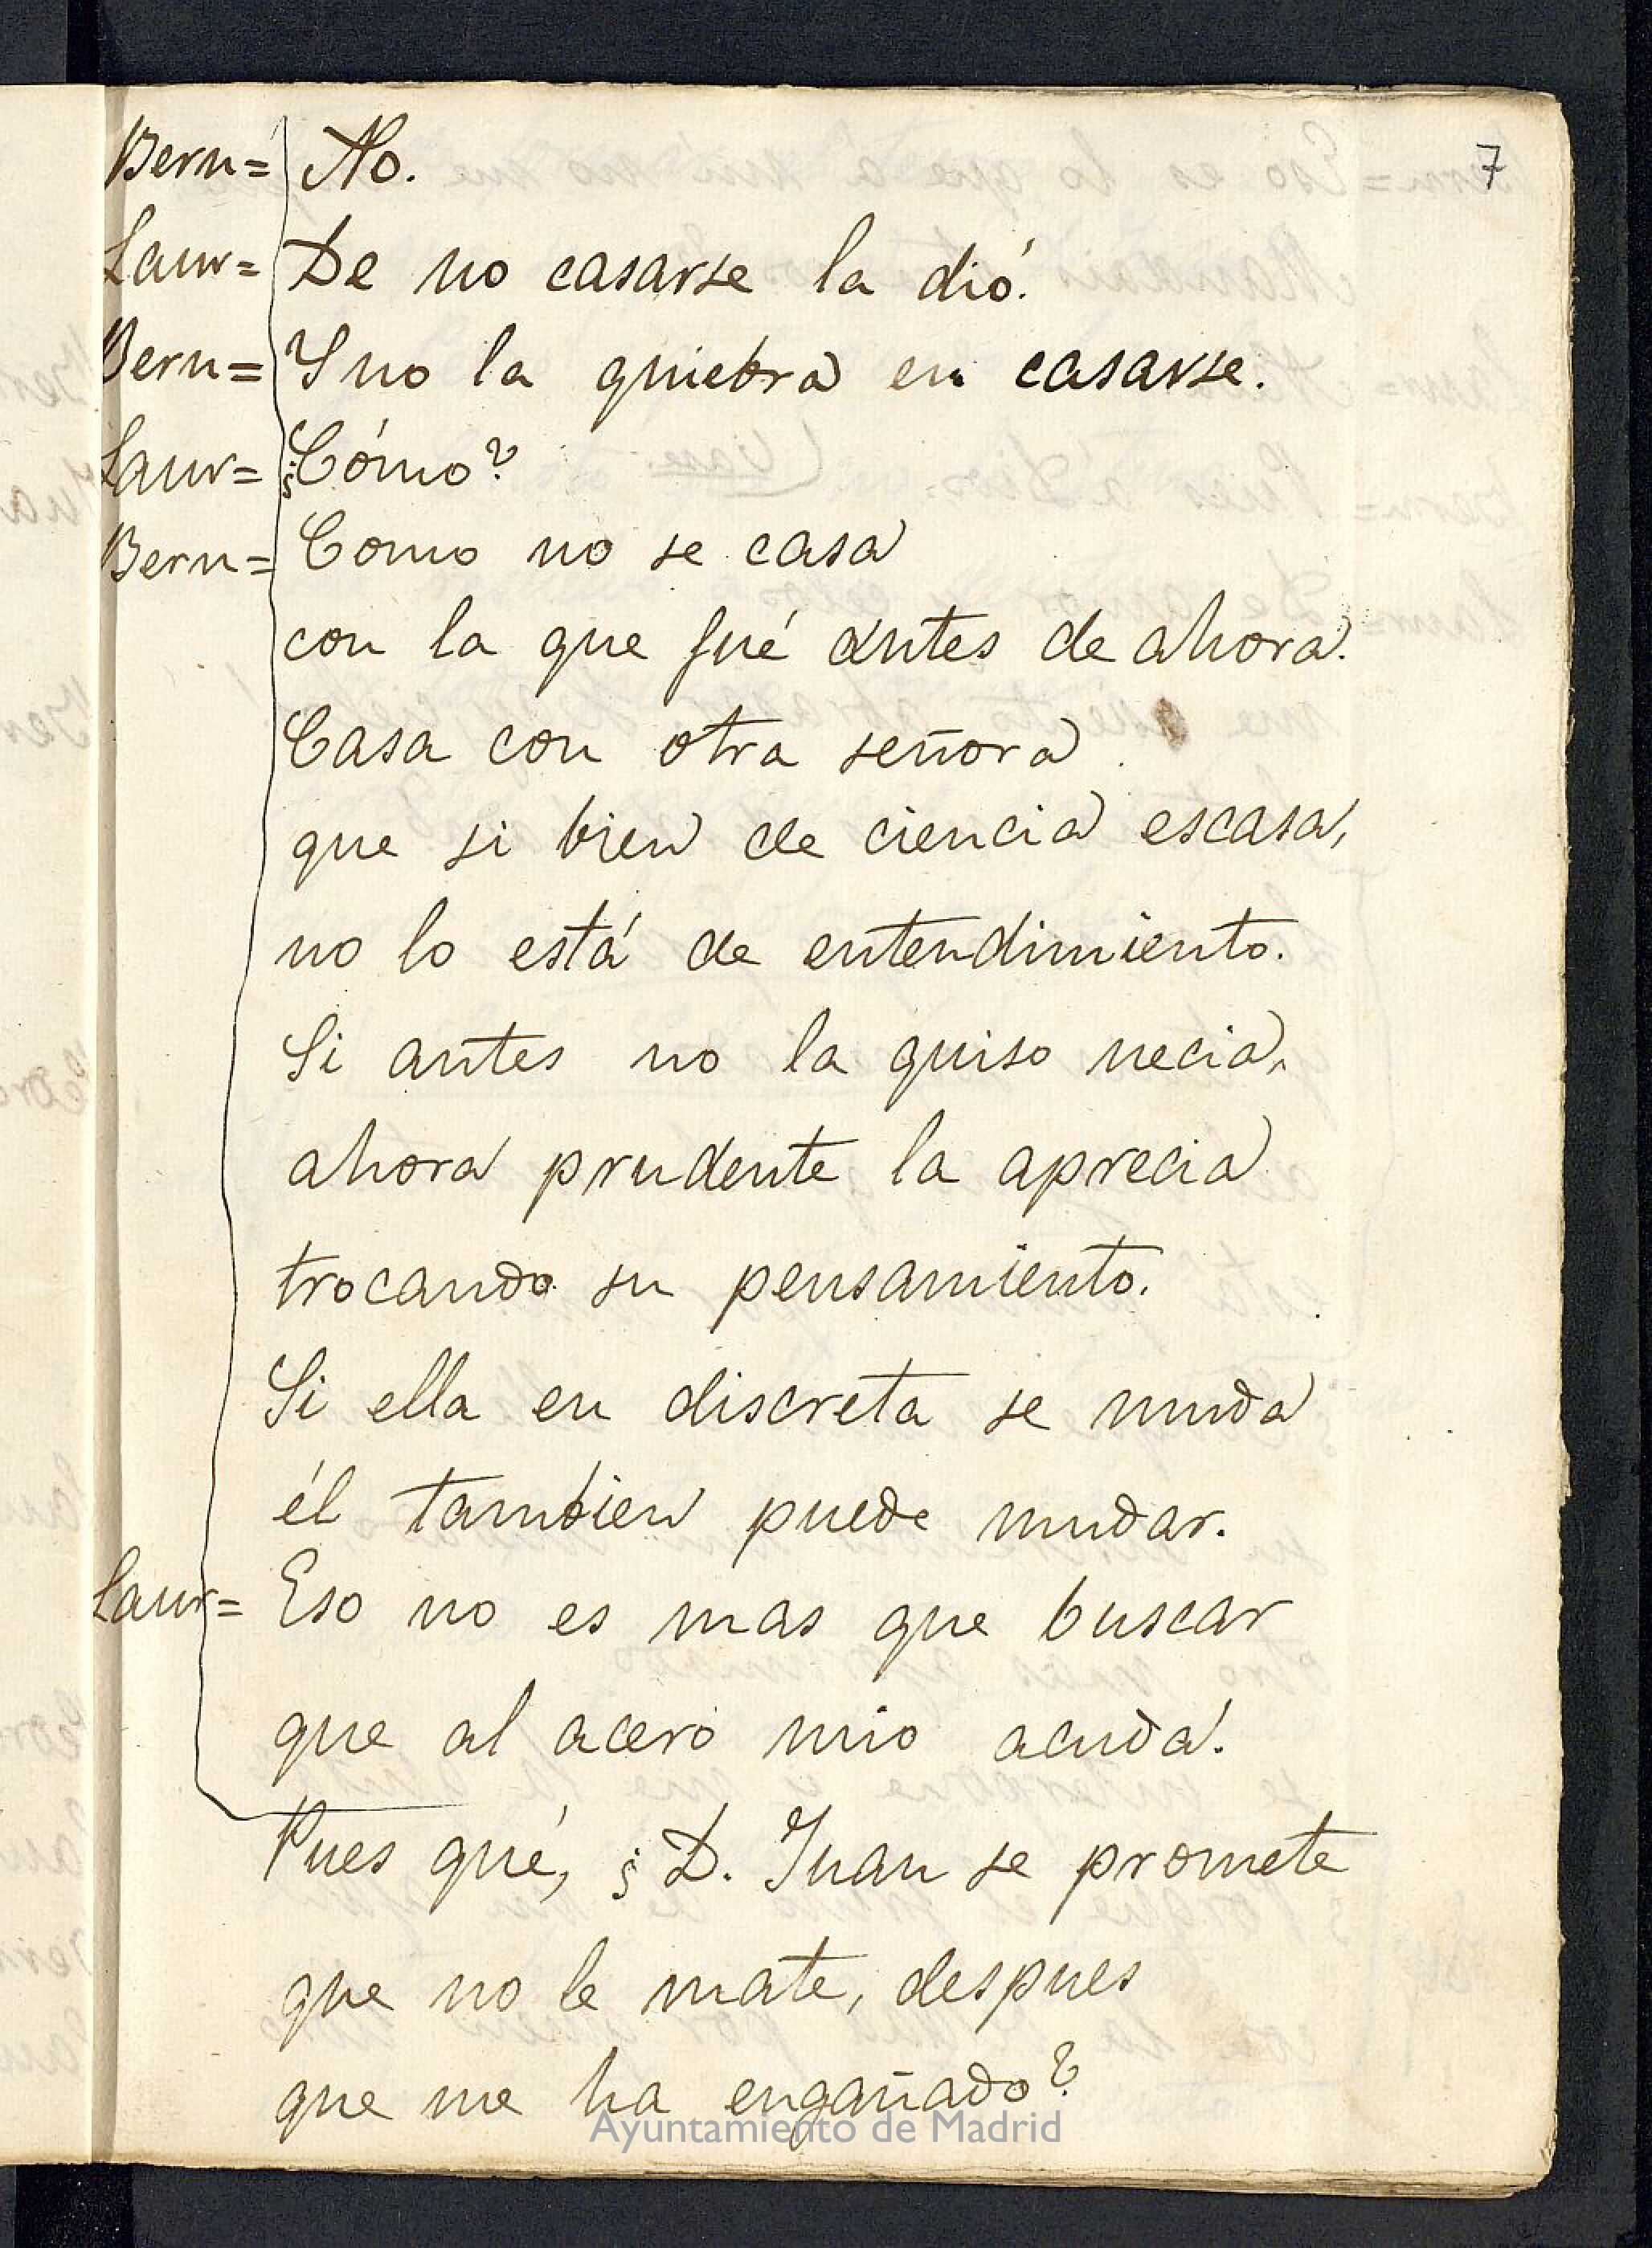 7
Bern= No.
Laur= De no casarse la dió.
Bern= Y no la quiebra en casarse.
Laur= ¿Cómo?
Bern= Como no se casa
con la que fué antes de ahora.
Casa con otra señora
que si bien de ciencia escasa,
no lo está de entendimiento.
Si antes no la quiso necia,
ahora prudente la aprecia
trocando su pensamiento.
Si ella en discreta se muda
él tambien puede mudar.
Laur= Eso no es mas que buscar
que al acero mio acuda.
Pues qué, ¿D. Juan se promete
que no le mate, despues
que me ha engañado?
Ayuntamiento de Madrid